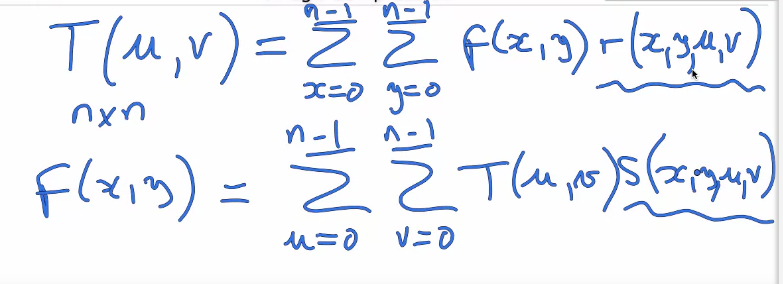 T(u,v) = \sum_{x=0}^{n-1} \sum_{y=0}^{n-1} f(x,y) r(x,y,u,v)
n×n
f(x,y) = \sum_{u=0}^{n-1} \sum_{v=0}^{n-1} T(u,v) S(x,y,u,v)